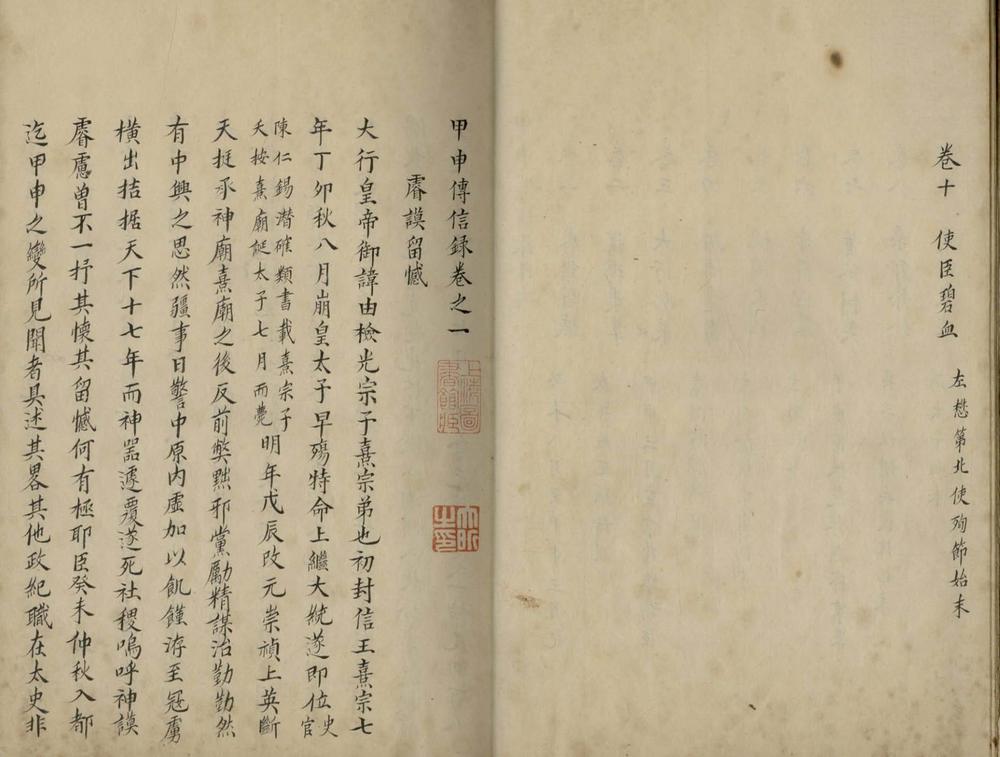 卷十 使臣碧血 左懋第北使殉節始末
甲申傳信録卷之一
睿謨留憾
大行皇帝御諱由檢光宗子熹宗弟也初封信王熹宗七
年丁卯秋八月崩皇太子早殤特命上繼大統遂即位史官
陳仁錫潛確類書載熹宗子
夭按熹廟誕太子七月而薨明年戊辰改元崇禎上英斷
天挺承神廟熹廟之後反前弊黜邪黨勵精謀治勤勤然
有中興之思然疆事日警中原内虛加以飢饉洊至冦虜
橫出拮据天下十七年而神噐遽覆遂死社稷嗚呼神謨
睿慮曾不一抒其懷其留憾何有極耶臣癸未仲秋入都
迄甲申之變所見聞者具述其畧其他政紀職在太史非
上海圖書館藏